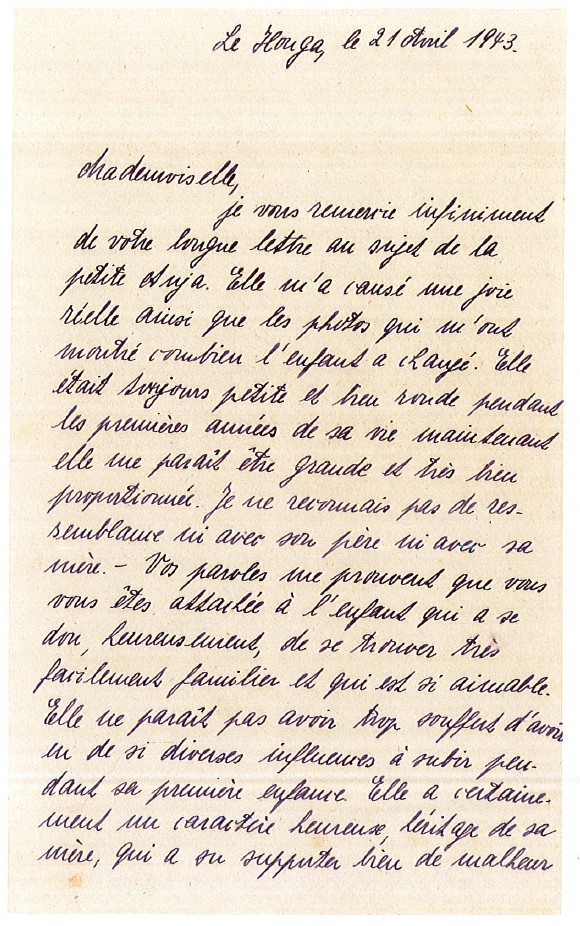 Le Houga, le 21 Avril 1943.
Mademoiselle,
je vous remercie infiniment
de votre longue lettre au sujet de la
petite Anja. Elle m'a causé une joie
réelle ainsi que les photos qui m'ont
montré combien l'enfant a changé. Elle
était toujours petite et bien ronde pendant
les premières années de sa vie maintenant
elle me paraît être grande et très bien
proportionnée. Je ne reconnais pas de res-
semblance ni avec son père ni avec sa
mère. – Vos paroles me prouvent que vous
vous êtes attachée à l'enfant qui a le
don, heureusement, de se trouver très
facilement familier et qui est si aimable.
Elle ne paraît pas avoir trop souffert d'avoir
eu de si diverses influences à subir pen-
dant sa première enfance. Elle a certaine-
ment un caractère heureuse, héritage de sa
mère, qui a su supporter bien de malheur